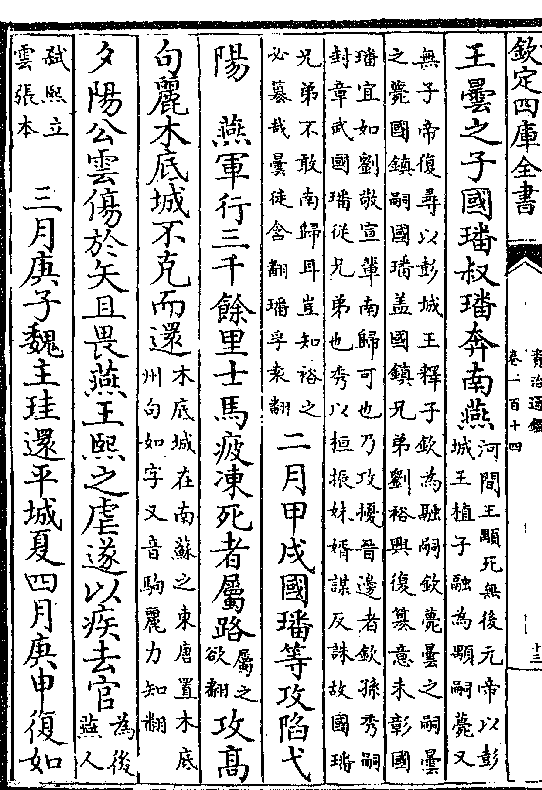 欽定四庫全書
資治通鑑
卷一百十四
十三
王曇之子國璠叔璠奔南燕
河間王顒死無後元帝以彭
城王植子融為顒嗣薨又
無子帝復尋以彭城王釋子欽為融嗣欽薨曇之嗣曇
之薨國鎮嗣國璠盖國鎮兄弟劉裕興復篡意未彰國
璠宜如劉敬宣輩南歸可也乃攻擾晉邊者欽孫秀嗣
封章武國璠從兄弟也秀以桓振妹婿謀反誅故國璠
兄弟不敢南歸耳豈知裕之
必篡哉曇徒含翻璠孚袁翻
二月甲戌國璠等攻陷弋
陽　燕軍行三千餘里士馬疲凍死者屬路
屬之
欲翻
攻高
句麗木底城不克而還
木底城在南蘇之東唐置木底
州句如字又音駒麗力知翻
夕陽公雲傷於矢且畏燕王熙之虐遂以疾去官
為後
燕人
弑熙立
雲張本
三月庚子魏主珪還平城夏四月庚申復如